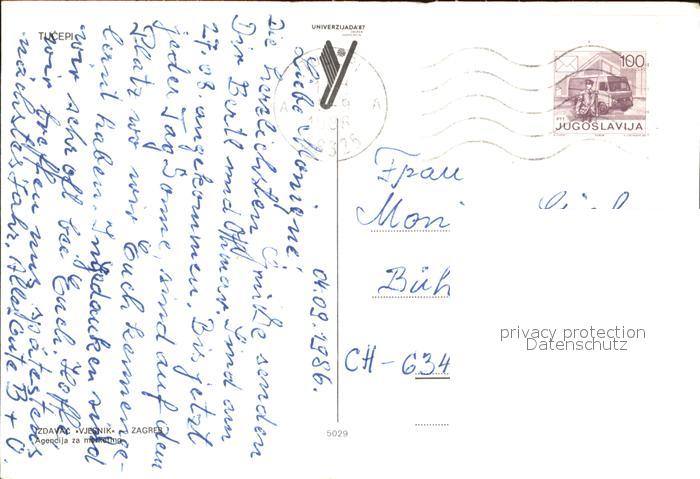 TUČEPI
UNIVERZIJADA'87
100
PTT
JUGOSLAVIJA
04.09.1986.
Liebe Monique!
Die herzlichsten Grüße senden
Dir Bertl und Othmar. Sind am
27.08. angekommen. Bis jetzt
jeden Tag Sonne, sind auf dem
Platz wo wir Euch kennenge-
lernt haben. In Gedanken sind
wir sehr oft bei Euch. Hoffe
wir treffen uns spätestens
nächstes Jahr. Alles Gute B + O.
Frau
Moni
Büh
CH-634
privacy protection
Datenschutz
IZDAVAČ «VJESNIK» ZAGREB
Agencija za marketing
5029